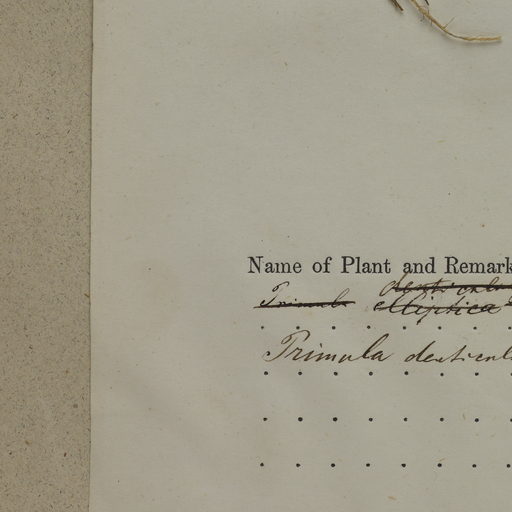 Name of Plant and Remark
denticula
Primula elliptica
Primula denticul